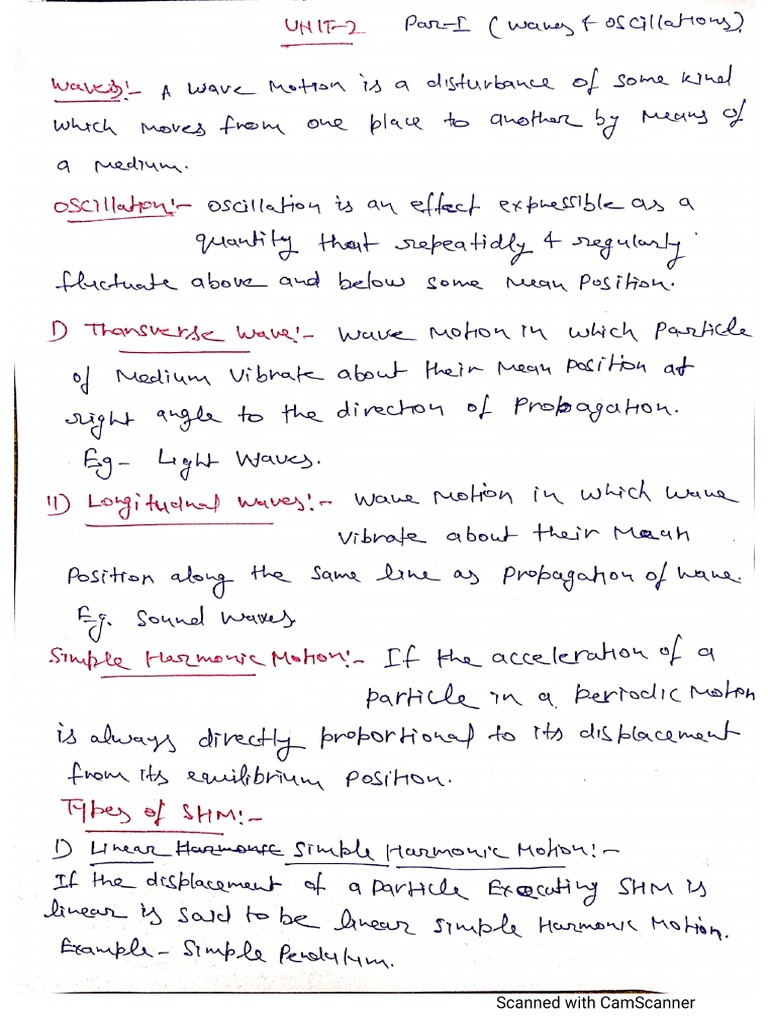 UNIT-2 Par-I (Waves & Oscillations)
Waves:- A wave motion is a disturbance of some kind
which moves from one place to another by means of
a medium.
Oscillation:- Oscillation is an effect expressible as a
quantity that repeatidly & regularly
fluctuate above and below some mean position.
I) Transverse Wave:- Wave motion in which particle
of medium vibrate about their mean position at
right angle to the direction of propagation.
Eg- Light Waves.
II) Longitudnal waves:- Wave motion in which wave
vibrate about their mean
position along the same line as propagation of wave.
Eg. Sound waves
Simple Harmonic Motion:- If the acceleration of a
particle in a periodic motion
is always directly proportional to its displacement
from its equilibrium position.
Types of SHM:-
I) Linear Harmonic Simple Harmonic Motion:-
If the displacement of a particle Executing SHM is
linear is said to be linear simple Harmonic Motion.
Example - Simple Pendulum.
Scanned with CamScanner